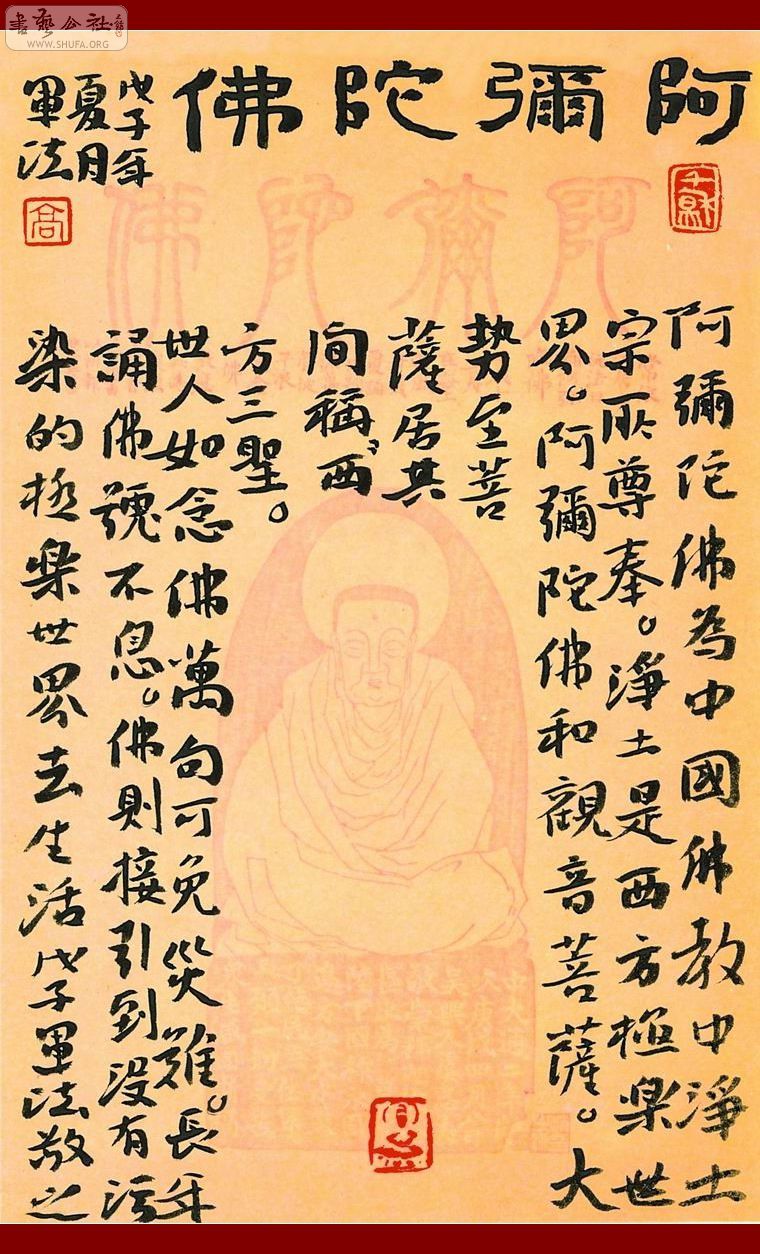 書藝公社
WWW.SHUFA.ORG
阿彌陀佛
戊子年
夏月
軍法
高
阿彌陀佛
阿彌陀佛為中國佛教中淨土
宗所尊奉。淨土是西方極樂世
界。阿彌陀佛和觀音菩薩。大
勢至菩
薩居其
間稱、西
方三聖。
世人如念佛萬句可免災難。長年
誦佛號不息。佛則接引到沒有污
染的極樂世界去生活戊子軍法敬之